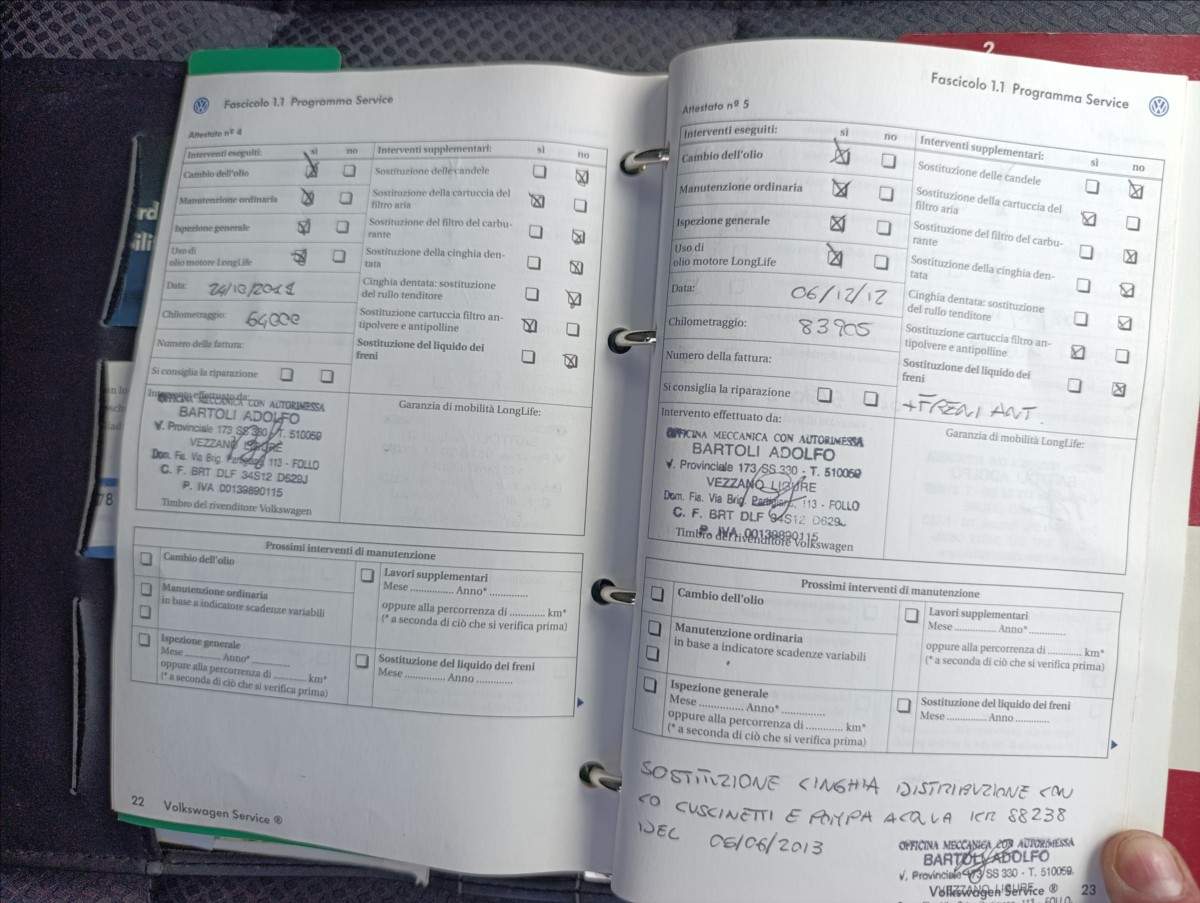 Fascicolo 1.1 Programma Service
Attestato nº 4
Interventi eseguiti:
sì
no
Interventi supplementari:
sì
no
Cambio dell'olio
Sostituzione delle candele
Manutenzione ordinaria
Sostituzione della cartuccia del
filtro aria
Ispezione generale
Sostituzione del filtro del carbu-
rante
Uso di
olio motore LongLife
Sostituzione della cinghia den-
tata
Data:
24/10/2011
Cinghia dentata: sostituzione
del rullo tenditore
Chilometraggio:
64000
Sostituzione cartuccia filtro an-
tipolvere e antipolline
Numero della fattura:
Sostituzione del liquido dei
freni
Si consiglia la riparazione
Intervento effettuato da:
OFFICINA MECCANICA CON AUTORIMESSA
BARTOLI ADOLFO
V. Provinciale 173 SS 330 - T. 510059
VEZZANO LIGURE
Dom. Fis. Via Brig. Partigiane 113 - FOLLO
C. F. BRT DLF 34S12 D629J
P. IVA 00139890115
Timbro del rivenditore Volkswagen
Garanzia di mobilità LongLife:
Prossimi interventi di manutenzione
Cambio dell'olio
Manutenzione ordinaria
in base a indicatore scadenze variabili
Ispezione generale
Mese ............ Anno* ............
oppure alla percorrenza di .......... km*
(* a seconda di ciò che si verifica prima)
Lavori supplementari
Mese ............ Anno* ............
oppure alla percorrenza di .......... km*
(* a seconda di ciò che si verifica prima)
Sostituzione del liquido dei freni
Mese ............ Anno ............
22 Volkswagen Service ®
2
Fascicolo 1.1 Programma Service
Attestato nº 5
Interventi eseguiti:
sì
no
Interventi supplementari:
sì
no
Cambio dell'olio
Sostituzione delle candele
Manutenzione ordinaria
Sostituzione della cartuccia del
filtro aria
Ispezione generale
Sostituzione del filtro del carbu-
rante
Uso di
olio motore LongLife
Sostituzione della cinghia den-
tata
Data:
06/12/12
Cinghia dentata: sostituzione
del rullo tenditore
Chilometraggio:
83905
Sostituzione cartuccia filtro an-
tipolvere e antipolline
Numero della fattura:
Sostituzione del liquido dei
freni
Si consiglia la riparazione
+FRENI ANT.
Intervento effettuato da:
OFFICINA MECCANICA CON AUTORIMESSA
BARTOLI ADOLFO
V. Provinciale 173/SS 330 - T. 510059
VEZZANO LIGURE
Dom. Fis. Via Brig. Partigiane 113 - FOLLO
C. F. BRT DLF 34S12 D629J
P. IVA 00139890115
Timbro del rivenditore Volkswagen
Garanzia di mobilità LongLife:
Prossimi interventi di manutenzione
Cambio dell'olio
Manutenzione ordinaria
in base a indicatore scadenze variabili
Ispezione generale
Mese ............ Anno* ............
oppure alla percorrenza di .......... km*
(* a seconda di ciò che si verifica prima)
Lavori supplementari
Mese ............ Anno* ............
oppure alla percorrenza di .......... km*
(* a seconda di ciò che si verifica prima)
Sostituzione del liquido dei freni
Mese ............ Anno ............
SOSTITUZIONE CINGHIA DISTRIBUZIONE CON
CUSCINETTI E POMPA ACQUA KM 88238
DEL 06/06/2013
OFFICINA MECCANICA CON AUTORIMESSA
BARTOLI ADOLFO
V. Provinciale 173/SS 330 - T. 510059
VEZZANO LIGURE
Volkswagen Service ® 23